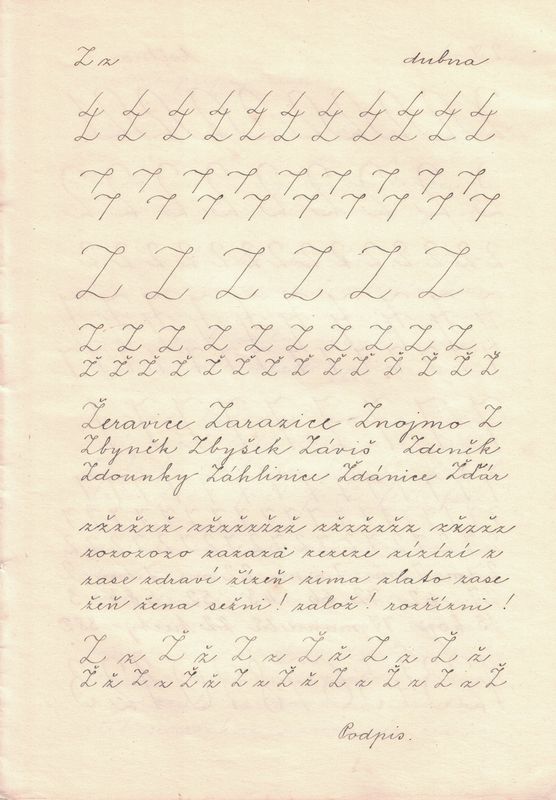 Z z dubna
Z Z Z Z Z Z
Z Z Z Z Z Z Z Z Z Z
Ž Ž Ž Ž Ž Ž Ž Ž Ž Ž Ž Ž Ž Ž
Žeravice Zarazice - Znojmo Z
Zbyněk Zbyšek Záviš Zdeněk
Zdounky Záhlinice Ždánice Žďár
zžzžžž zžzžžžž zžžžžžz zžzžz
zozozozo zazazá zezeze zízízí z
zase zdraví žízeň zima zlato zase
žeň žena sežni! založ! rozřízni!
Z z Ž ž Z z Ž ž Z z Ž ž
Ž ž Z z Ž ž Z z Ž ž Z z Ž z Z z Ž
Podpis.